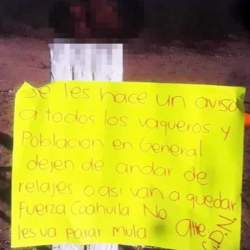 Se les hace un aviso
a todos los vaqueros y
Poblacion en General
dejen de andar de
relajes o asi van a quedar
Fuerza Coahuila No
les va parar mula Atte
N.D.